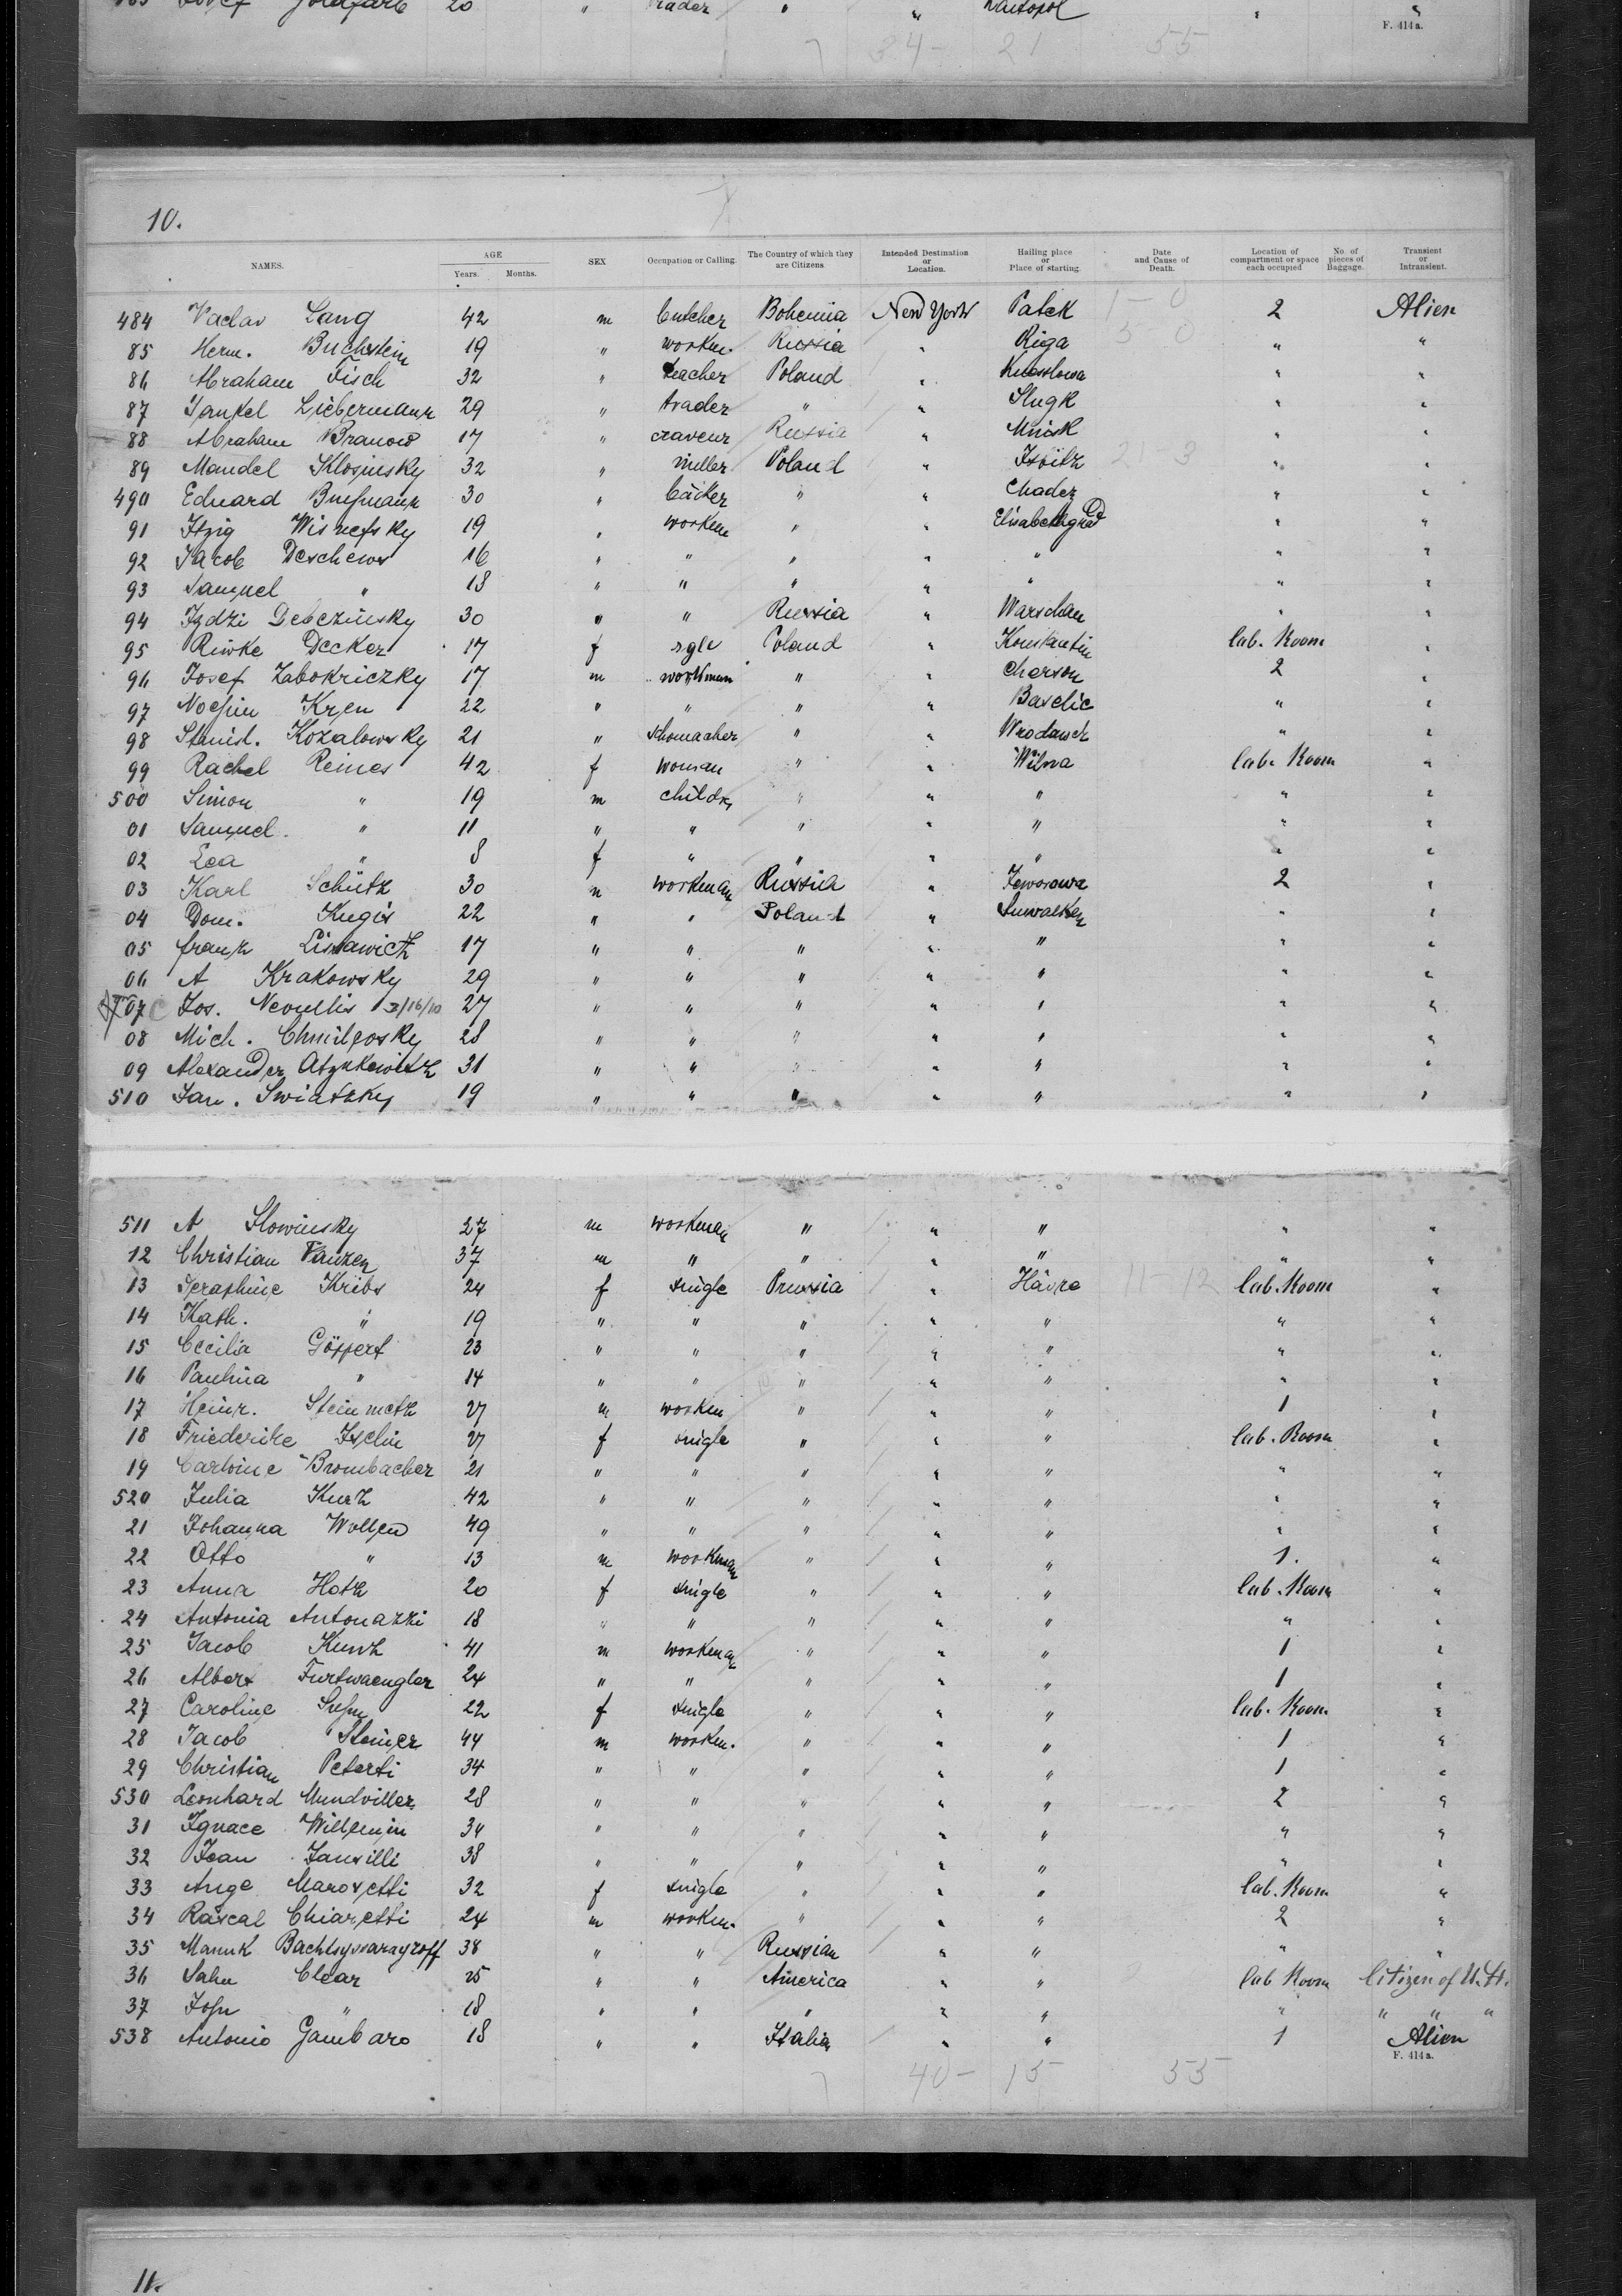 20 " trader " "
F. 414a.
7 34- 21 55
10.
NAMES. AGE Years. Months. SEX Occupation or Calling. The Country of which they are Citizens Intended Destination or Location. Hailing place or Place of starting. Date and Cause of Death. Location of compartment or space each occupied No. of pieces of Baggage. Transient or Intransient.
484 Vaclav Lang 42 m butcher Bohemia New York Patek 1-0 2 Alien
85 Herm. Buchstein 19 " workm. Russia " Riga 5 0 " "
86 Abraham Fisch 32 " teacher Poland " " "
87 Jankel Liebermann 29 " trader " " Slugk " "
88 Abraham Branow 17 " graveur Russia " Minsk " "
89 Mandel Klosinsky 32 " miller Poland " 21-3 " "
490 Eduard 30 " bäcker " " Chader " "
91 Itzig Wisnefsky 19 " workm " " Elisabethgrad " "
92 Jacob Deschews 16 " " " " " " "
93 Samuel " 18 " " " " " " "
94 Debczinsky 30 " " Russia " Warschau " "
95 Riwke Decker 17 f sgle Poland " Konstantin Cab. Room "
96 Josef Zabokriczky 17 m workman " " Cherson 2 "
97 22 " " " " Baselic " "
98 Stanisl. Kozalowsky 21 " schomacher " " " "
99 Rachel Reines 42 f woman " " Wilna Cab. Room "
500 Simon " 19 m childr " " " " "
01 Samuel " 11 " " " " " " "
02 Lea " 8 f " " " " " "
03 Karl Schütz 30 m workman Russia " 2 "
04 Dom. Kugis 22 " " Poland " Suwalken " "
05 Frank 17 " " " " " " "
06 A Krakowsky 29 " " " " " " "
X 07 C Jos. Nevullis 3/16/10 27 " " " " " " "
08 Mich. 28 " " " " " " "
09 Alexander 31 " " " " " " "
510 Jan. Swiatzky 19 " " " " " " "
511 A Slowinsky 27 m workman " " " " "
12 Christian 37 m " " " " " "
13 Seraphine Kribs 24 f single Prussia " Hâvre 11-12 Cab. Room "
14 Kath. " 19 " " " " " " "
15 Cecilia Göppert 23 " " " " " " "
16 Paulina " 14 " " " " " " "
17 Heinr. Steinmetz 27 m workm " " " 1 "
18 Friederike Iselin 27 f single " " " Cab. Room "
19 Carloine Brombacher 21 " " " " " " "
520 Julia Kurz 42 " " " " " " "
21 Johanna 49 " " " " " " "
22 Otto " 13 m workman " " " 1. "
23 Anna Hotz 20 f single " " " Cab. Room "
24 Antonia Antonazzi 18 " " " " " " "
25 Jacob Kunz 41 m workman " " " 1 "
26 Albert Furtwaengler 24 " " " " " 1 "
27 Caroline 22 f single " " " Cab. Room "
28 Jacob Steiner 44 m workm. " " " 1 "
29 Christian Peterti 34 " " " " " 1 "
530 Leonhard Mundviller 28 " " " " " 2 "
31 Ignace Willemin 34 " " " " " " "
32 Jean Jansilli 38 " " " " " " "
33 Ange Marosetti 32 f single " " " Cab. Room "
34 Rascal Chiaretti 24 m workm. " " " 2 "
35 Manuk 38 " " Russian " " " "
36 Clear 25 " " America " " Cab Room Citizen of U. St.
37 John " 18 " " " " " " " " "
538 Antonio Gambaro 18 " " Italia " " 1 Alien
F. 414a.
7 40- 15 55
11.